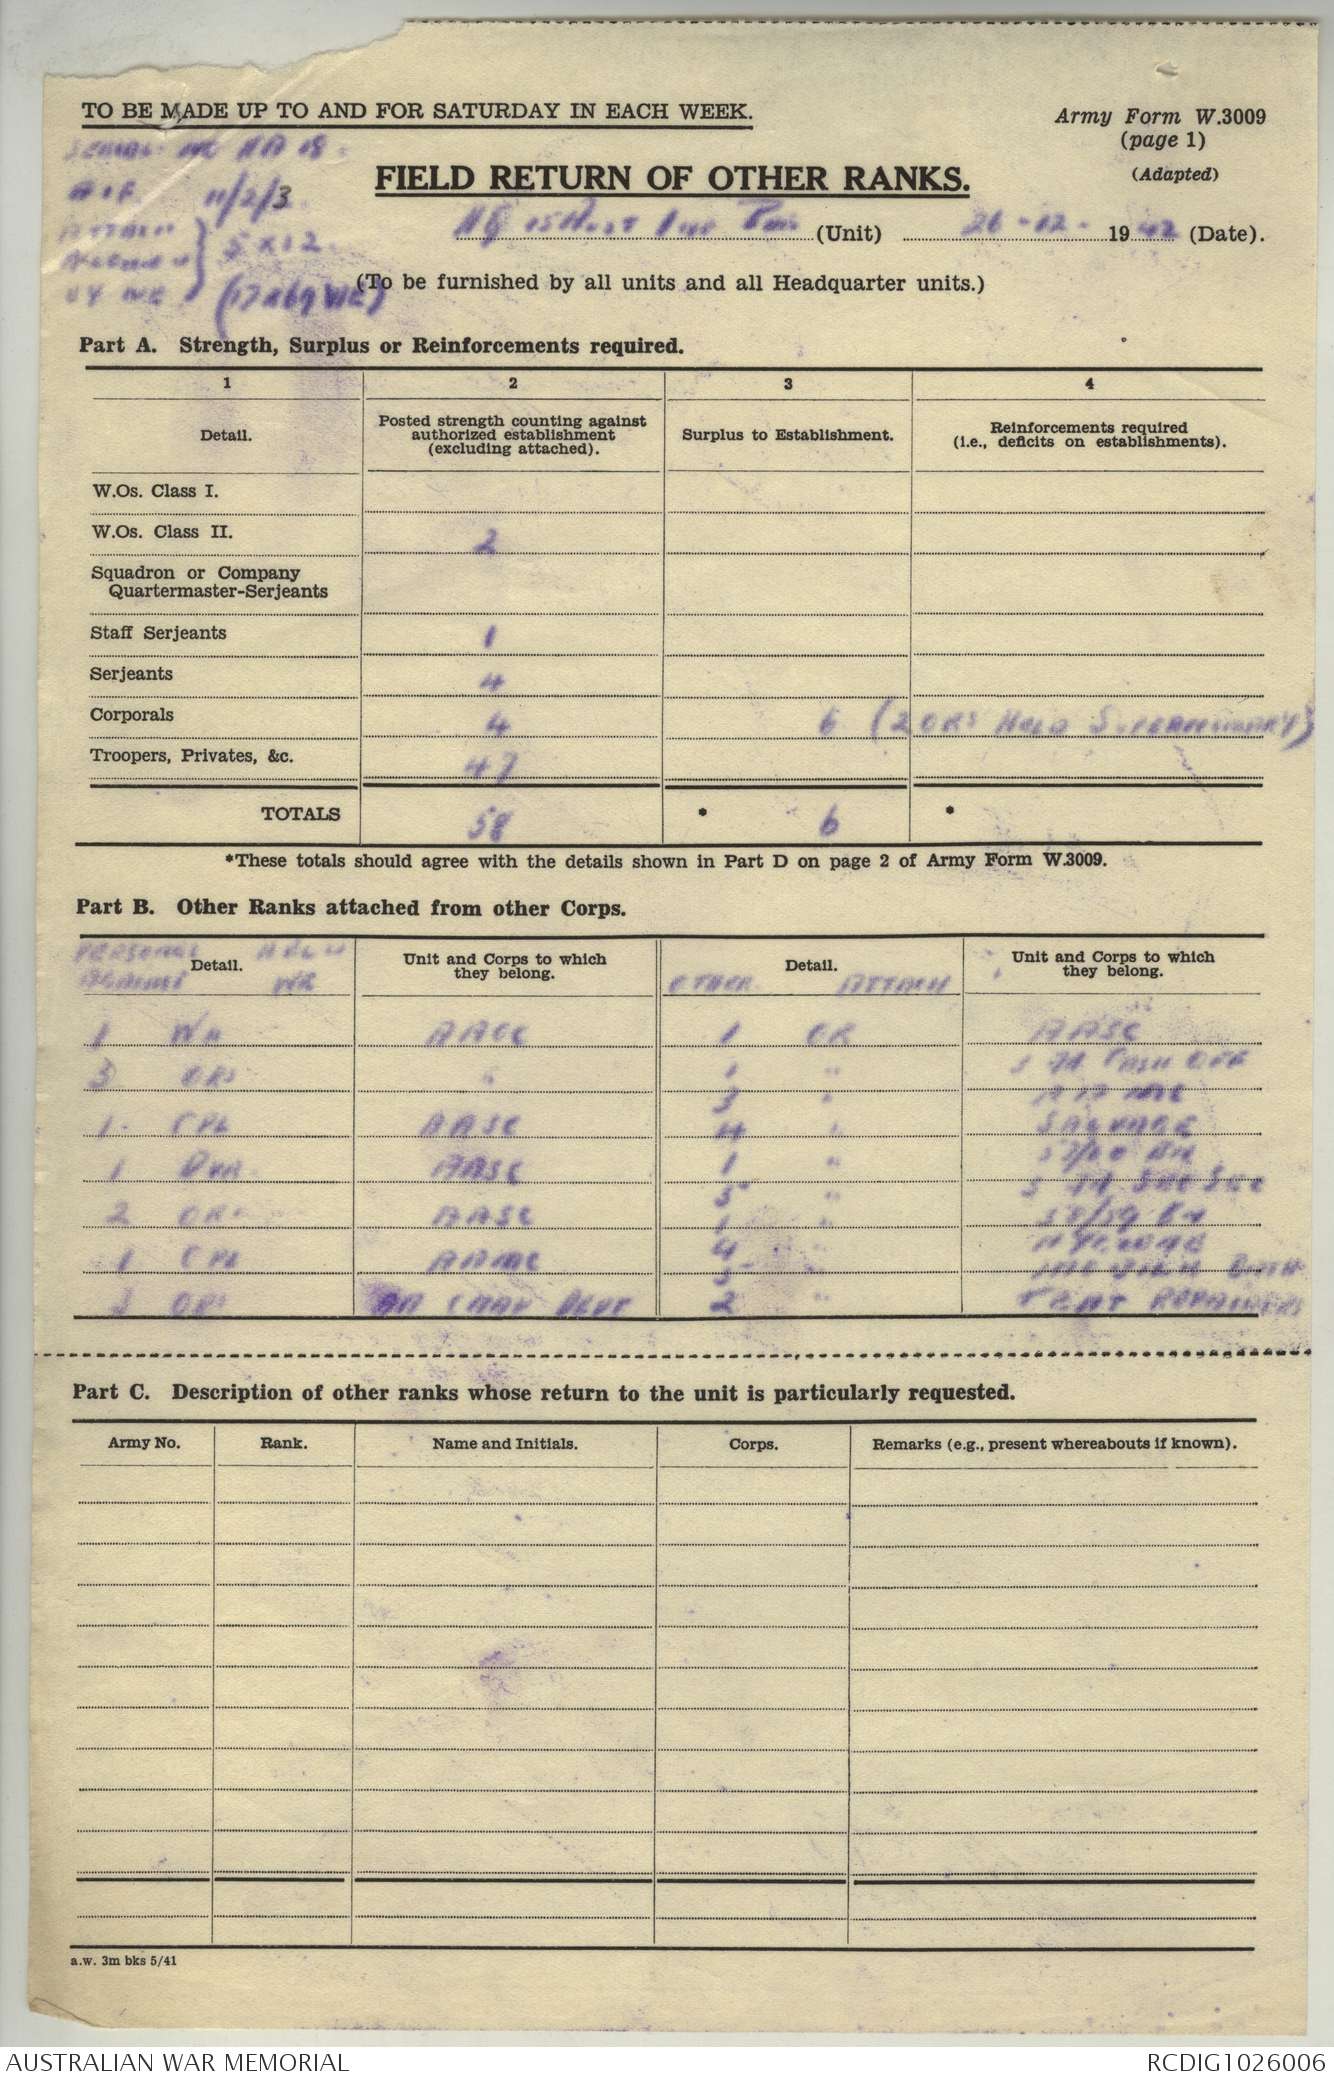 TO BE MADE UP TO AND FOR SATURDAY IN EACH WEEK.
Army Form W.3009
(page 1)
(Adapted)
FIELD RETURN OF OTHER RANKS.
11/2/3
HQ 15 Aust Inf (Unit) 26-12- 1942 (Date).
5 X 12
(To be furnished by all units and all Headquarter units.)
Part A. Strength, Surplus or Reinforcements required.
1 2 3 4
Detail. Posted strength counting against authorized establishment (excluding attached). Surplus to Establishment. Reinforcements required (i.e., deficits on establishments).
W.Os. Class I.
W.Os. Class II. 2
Squadron or Company
Quartermaster-Serjeants
Staff Serjeants 1
Serjeants 4
Corporals 4 6 (2 ORs HELD SUPERNUMARY)
Troopers, Privates, &c. 47
TOTALS 58 * 6 *
*These totals should agree with the details shown in Part D on page 2 of Army Form W.3009.
Part B. Other Ranks attached from other Corps.
PERSONAL HELD AGAINST WE Detail. Unit and Corps to which they belong. OTHER Detail. ATTACH Unit and Corps to which they belong.
1 AACC 1 OR AASC
3 ORs " 1 "
3 "
1 CPL AASC 4 " SALVAGE
1 DVR AASC 1 " 57/60 BN
5 "
2 OR AASC 1 " 58/59 BN
1 CPL AAMC 4 "
3 ORs 2 " TENT REPAIRERS
Part C. Description of other ranks whose return to the unit is particularly requested.
Army No. Rank. Name and Initials. Corps. Remarks (e.g., present whereabouts if known).
a.w. 3m bks 5/41
AUSTRALIAN WAR MEMORIAL RCDIG1026006